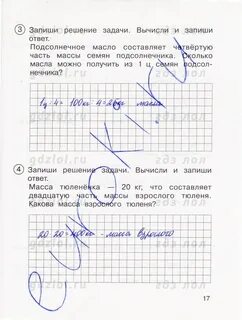 3 Запиши решение задачи. Вычисли и запиши
ответ.
Подсолнечное масло составляет четвёртую
часть массы семян подсолнечника. Сколько
масла можно получить из 1 ц семян подсол-
нечника?
1ц:4= 100кг:4=25кг масла
4 Запиши решение задачи. Вычисли и запиши
ответ.
Масса тюленёнка — 20 кг, что составляет
двадцатую часть массы взрослого тюленя.
Какова масса взрослого тюленя?
20·20=400кг - масса взрослого
17